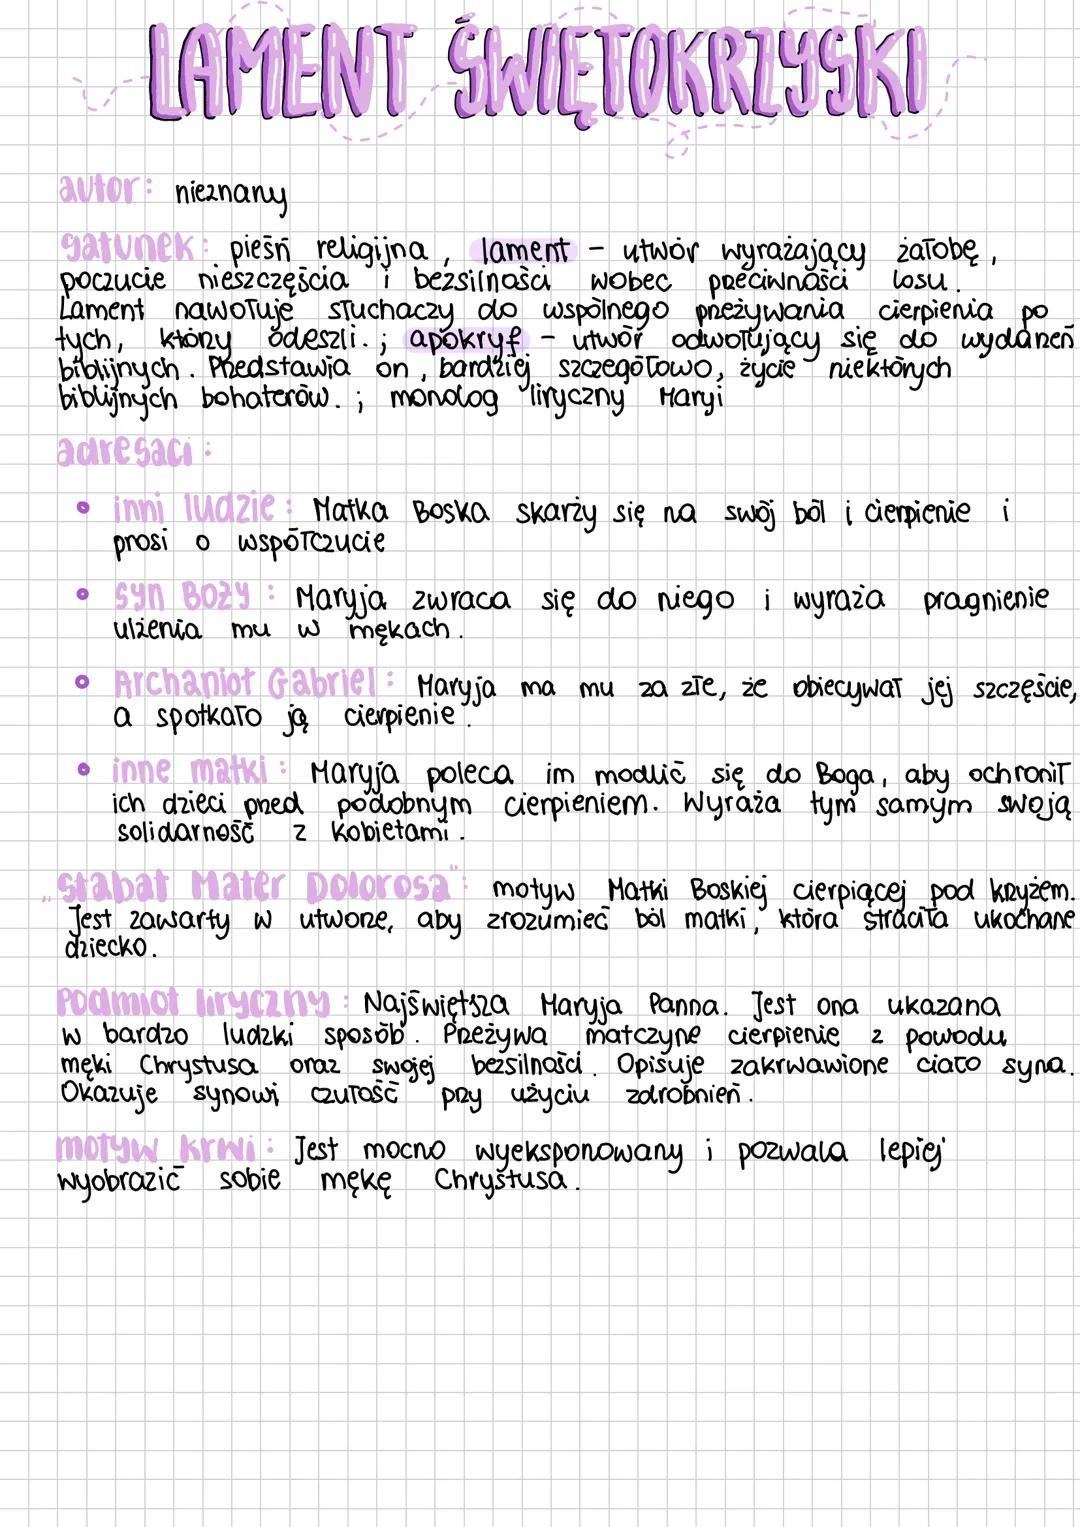 LAMENT ŚWIĘTOKRZYSKI
autor: nieznany
gatunek: pieśń religijna, lament - utwór wyrażający żałobę,
poczucie nieszczęścia i bezsilności wobec przeciwności losu.
Lament nawołuje słuchaczy do wspólnego przeżywania cierpienia po
tych, którzy odeszli.; apokryf - utwór odwołujący się do wydarzeń
biblijnych. Przedstawia on, bardziej szczegółowo, życie niektórych
biblijnych bohaterów. ; monolog liryczny Maryi
adresaci:
• inni ludzie: Matka Boska skarży się na swój ból i cierpienie i
prosi o współczucie
• syn Boży: Maryja zwraca się do niego i wyraża pragnienie
ulżenia mu w mękach.
• Archanioł Gabriel: Maryja ma mu za złe, że obiecywał jej szczęście,
a spotkało ją cierpienie.
• inne matki: Maryja poleca im modlić się do Boga, aby ochronił
ich dzieci przed podobnym cierpieniem. Wyraża tym samym swoją
solidarność z kobietami.
„Stabat Mater Dolorosa": motyw Matki Boskiej cierpiącej pod krzyżem.
Jest zawarty w utworze, aby zrozumieć ból matki, która straciła ukochane
dziecko.
Podmiot liryczny: Najświętsza Maryja Panna. Jest ona ukazana
w bardzo ludzki sposób. Przeżywa matczyne cierpienie z powodu
męki Chrystusa oraz swojej bezsilności. Opisuje zakrwawione ciało syna.
Okazuje synowi czułość przy użyciu zdrobnień.
motyw krwi: Jest mocno wyeksponowany i pozwala lepiej
wyobrazić sobie mękę Chrystusa.